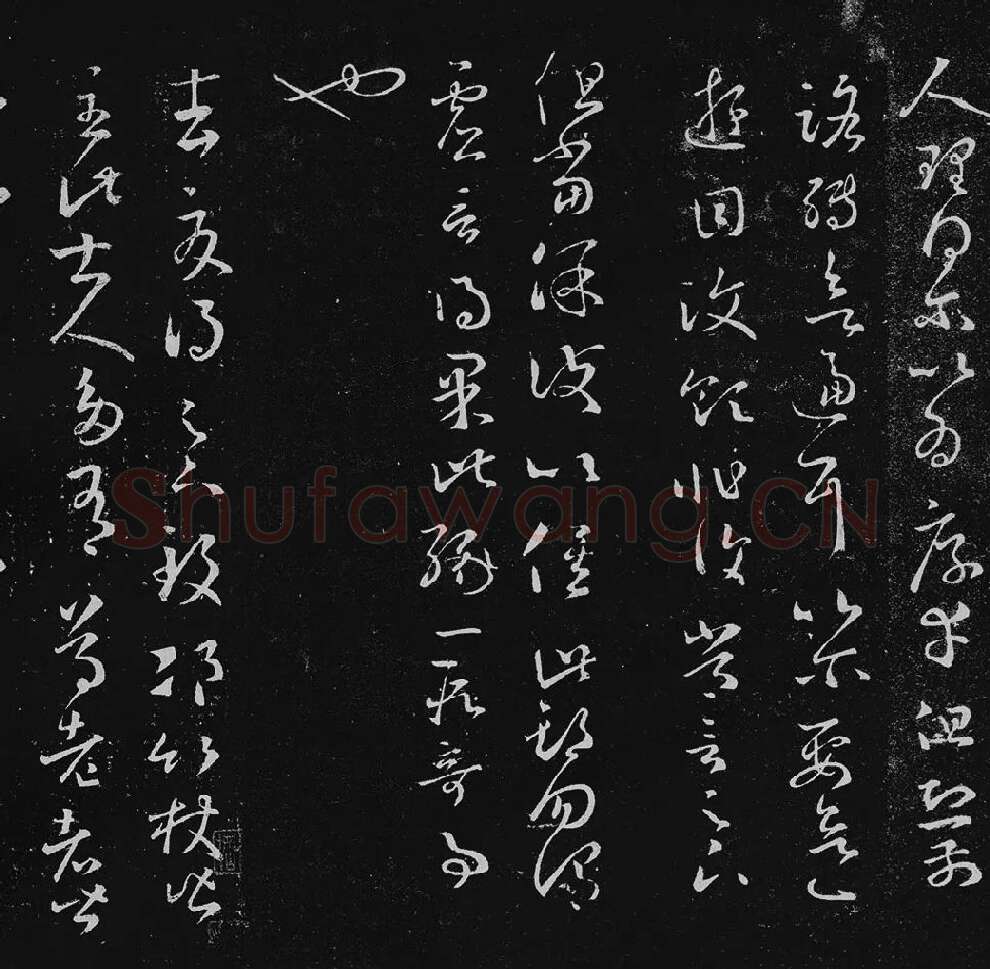 人理得爾以爲厚幸但恐前
路轉欲逼耳以爾要欲一
遊目汶領非復常言足下
但當保護以俟此期勿謂
虛言得果此緣一段奇事
也
去夏得足下致邛竹杖皆
至此士人多有尊老者皆
Shufawang.CN